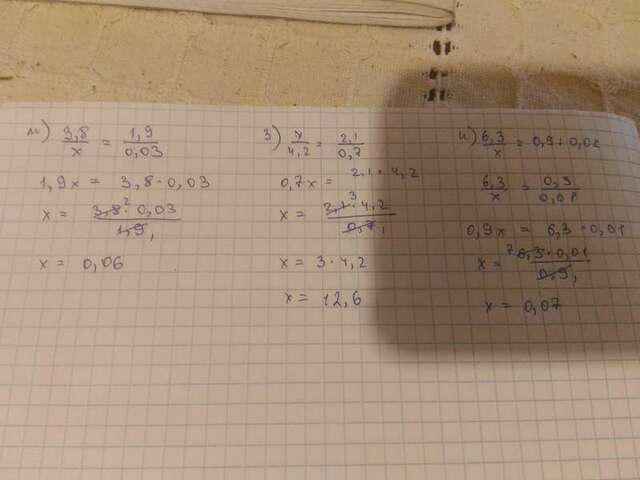 м) 3,8/x = 1,9/0,03
1,9x = 3,8·0,03
x = 3,8² · 0,03 / 1,9 1
x = 0,06
з) x/4,2 = 2,1/0,7
0,7x = 2,1 · 4,2
x = 2,1³ · 4,2 / 0,7 1
x = 3·4,2
x = 12,6
и) 6,3/x = 0,9 : 0,01
6,3/x = 0,9/0,01
0,9x = 6,3 · 0,01
x = ⁷6,3·0,01 / 0,9 1
x = 0,07